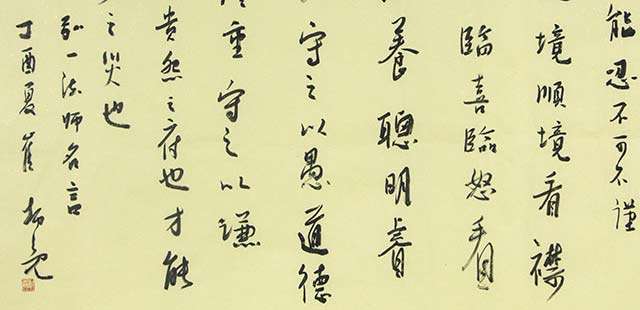 能忍不可不謹
境順境看襟
臨喜臨怒看
養聰明睿
守之以愚道德
重守之以謙
貴怨之府也才能
之災也
弘一法師名言
丁酉夏崔